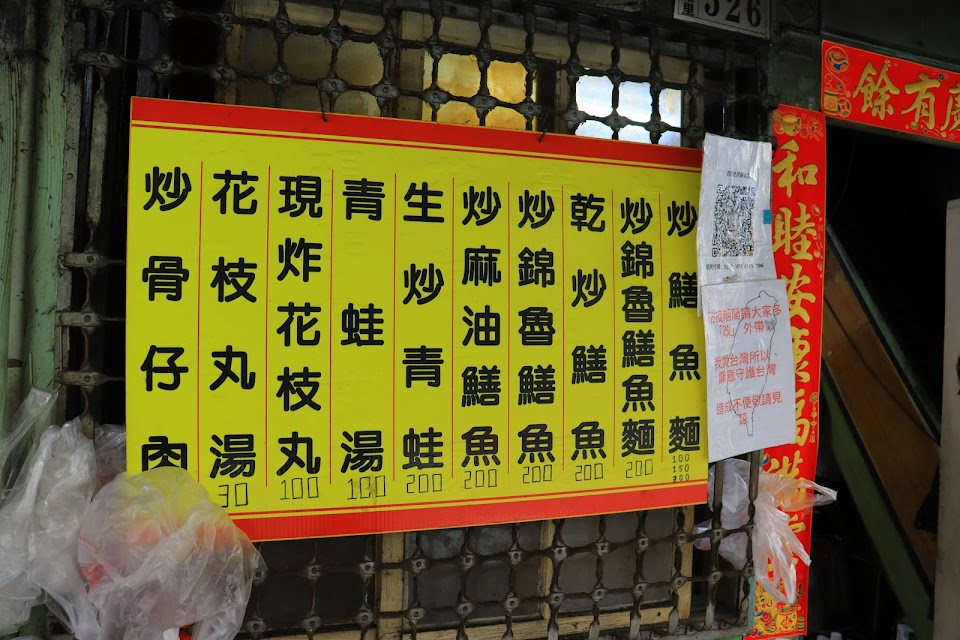 326
慶有餘
和睦安
炒鱔魚麵
100
150
200
炒錦魯鱔魚麵
200
乾炒鱔魚
200
炒錦魯鱔魚
200
炒麻油鱔魚
200
生炒青蛙
200
青蛙湯
100
現炸花枝丸
100
花枝丸湯
30
炒骨仔肉
期間請大家多
「改」外帶
我愛台灣所以、
願意守護台灣
造成不便敬請見
諒